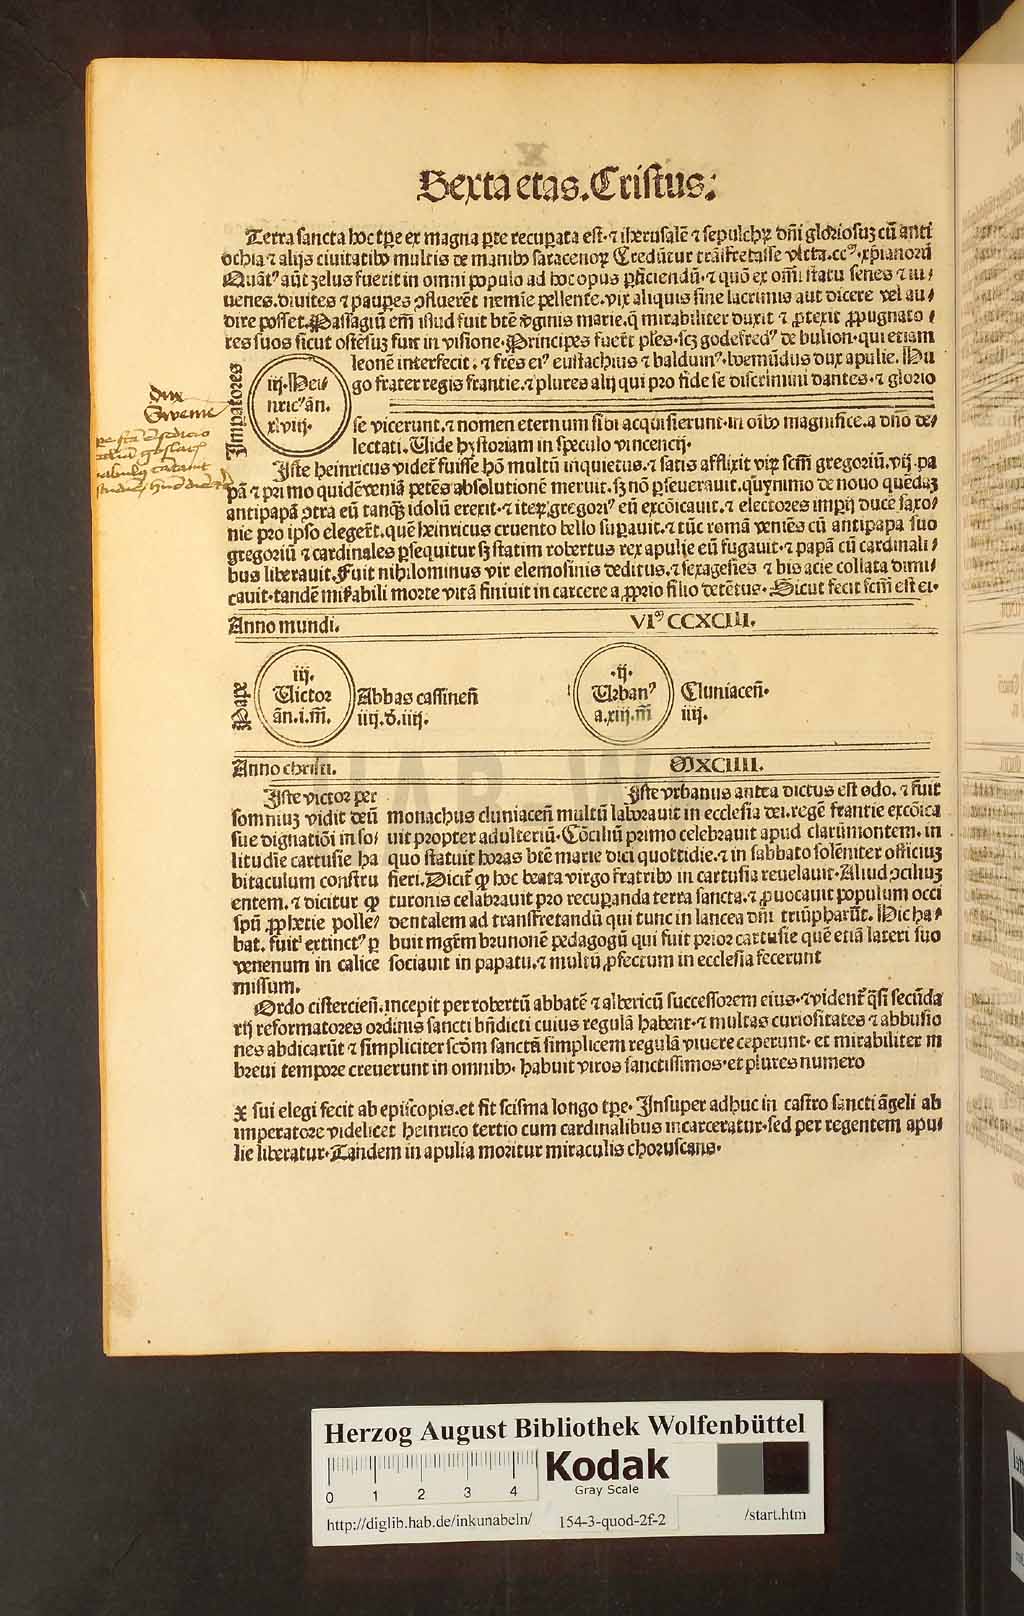 Sexta etas. Cristus:
Terra sancta hoc tp̱e ex magna ꝑte recuꝑata est·⁊ iherusalē ⁊ sepulchꝝ dñi gloriosuꝫ cū anti
ochia ⁊ alijs ciuitatibꝰ multis de manibꝰ saracenoꝝ Credūtur trāsfretasse vltra.ccᵐ.xp̄ianorū
Quātꝰ aūt zelus fuerit in omni populo ad hoc opus ꝑficiendū·⁊ quō ex om̄i statu senes ⁊ iu⸗
uenes.diuites ⁊ pauꝑes ꝯfluerēt nemīe pellente.vix aliquis sine lacrimis aut dicere vel au⸗
dire posset.Passagiū em̄ istud fuit btē ꝟginis marie.q̄ mirabiliter duxit ⁊ ꝓtexit ꝓpugnato⸗
res suos sicut ostēsuꝫ fuit in visione·Principes fuerūt ples.scꝫ godefredꝰ de bulion·qui etiam
leonē interfecit.⁊ frēs eiꝰ eustachius ⁊ balduinꝰ.boemūdus dux apulie. Hu
go frater regis frantie.⁊ plures alij qui pro fide se discrimini dantes·⁊ glorio
Imꝑatores
iij.Hei⸗
nricꝰ ān.
xlviij.
dux
Sweuie
se vicerunt.⁊ nomen eternum sibi acquisierunt·in oībꝰ magnifice.a dño de⸗
lectati.Uide hystoriam in speculo vincencij.
Iste heinricus videt̄ fuisse hō multū inquietus.⁊ satis afflixit viꝝ scm̄ gregoriū.vij.pa
pā ⁊ primo quidē veniā petēs absolutionē meruit.sꝫ nō ꝑseuerauit.quynimo de nouo quēdaꝫ
antipapā ꝯtra eū tanqꝫ idolū erexit·⁊ iteꝝ gregoriꝰ eū excōicauit.⁊ electores imp̄ij ducē saxo⸗
nie pro ipso elegerūt.quē heinricus cruento bello suꝑauit.⁊ tūc romā veniēs cū antipapa suo
gregoriū ⁊ cardinales ꝑsequitur sꝫ statim robertus rex apulie eū fugauit·⁊ papā cū cardinali⸗
bus liberauit.Fuit nihilominus vir elemosinis deditus.⁊ sexagesies ⁊ bis acie collata dimi⸗
cauit·tandē mirabili morte vitā finiuit in carcere a ꝓprio filio detētus·Sicut fecit scm̄ est ei·
Anno mundi. VIᵐ CCXCIII.
Papa
iij.
Uictor
ān.i.m̄.
Abbas cassineñ
iiij.d.iiij.
·ij·
Urbanꝰ
a.xiij.m̄
Cluniaceñ·
iiij.
Anno christi. MXCIIII.
Iste victor per
somniuꝫ vidit deū
sue dignatiōi in so⸗
litudīe cartusie ha
bitaculum constru
entem.⁊ dicitur ꝙ
spū ꝓphetie polle⸗
bat. fuitꝙ extinctꝰ ꝑ
venenum in calice
missum.
Iste vrbanus antea dictus est odo.⁊ fuit
monachus cluniaceñ multū laborauit in ecclesia dei.regē frantie excōica
uit propter adulteriū·Cōciliū primo celebrauit apud clarūmontem.in
quo statuit horas btē marie dici quottidie.⁊ in sabbato solēniter officiuꝫ
fieri.Dicit̄ ꝙ hoc beata virgo fratribꝰ in cartusia reuelauit·Aliud ꝯciliuꝫ
turonis celabrauit pro recuꝑanda terra sancta.⁊ ꝓuocauit populum occi
dentalem ad transfretandū qui tunc in lancea dñi triūpharūt. Hic ha⸗
buit mgr̄m brunonē pedagogū qui fuit prior cartusie quē etiā lateri suo
sociauit in papatu.⁊ multū ꝓfectum in ecclesia fecerunt
Ordo cistercieñ.incepit per robertū abbatē ⁊ albericū successorem eius·⁊ vident̄ q̄si secūda
rij reformatores ordinis sancti bñdicti cuius regulā habent·⁊ multas curiositates ⁊ abbusio
nes abdicarūt ⁊ simpliciter scōm sanctā simplicem regulā viuere ceperunt· et mirabiliter in
breui tempore creuerunt in omnibꝰ· habuit viros sanctissimos·et plures numero
x sui elegi fecit ab episcopis.et fit scisma longo tp̱e·Insuper adhuc in castro sancti āgeli ab
imperatore videlicet heinrico tertio cum cardinalibus incarceratur·sed per regentem apu⸗
lie liberatur·Tandem in apulia moritur miraculis choruscans·
Herzog August Bibliothek Wolfenbüttel
0 1 2 3 4
Kodak
Gray Scale
http://diglib.hab.de/inkunabeln/ 154-3-quod-2f-2 /start.htm